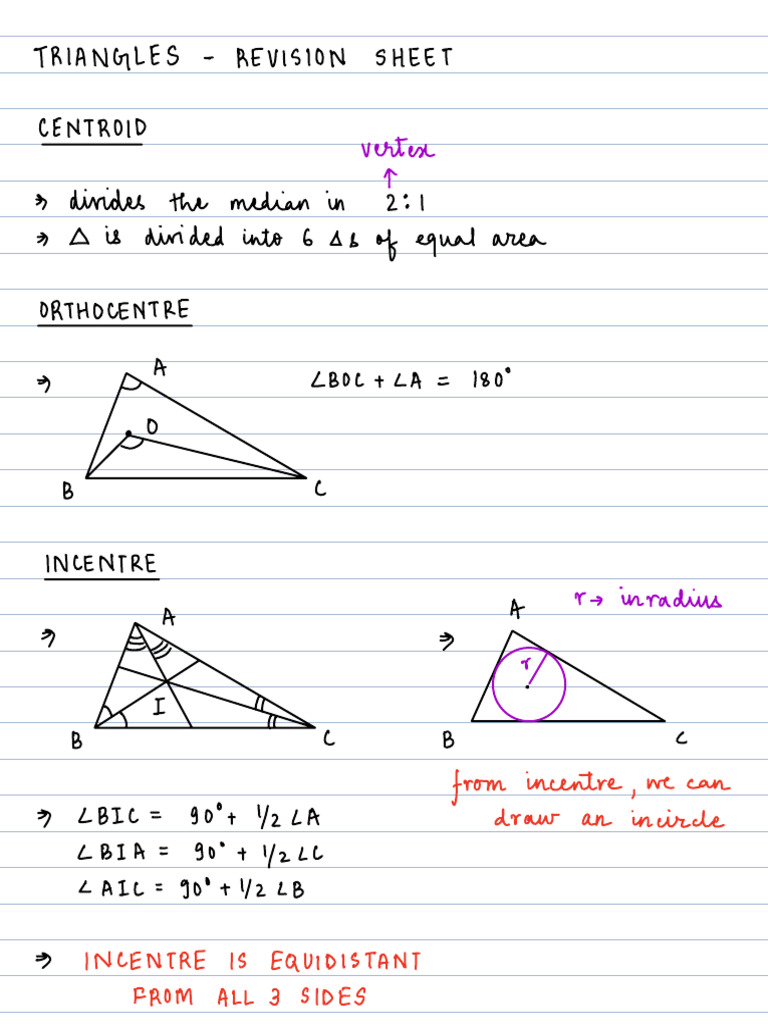 TRIANGLES - REVISION SHEET
CENTROID
vertex
↑
⇒ divides the median in 2:1
⇒ △ is divided into 6 △s of equal area
ORTHOCENTRE
⇒ ∠BOC + ∠A = 180°
A
O
B
C
INCENTRE
r → inradius
⇒
A
I
B
C
⇒
A
r
B
C
from incentre, we can
draw an incircle
⇒ ∠BIC = 90° + 1/2 ∠A
∠BIA = 90° + 1/2 ∠C
∠AIC = 90° + 1/2 ∠B
⇒ INCENTRE IS EQUIDISTANT
FROM ALL 3 SIDES